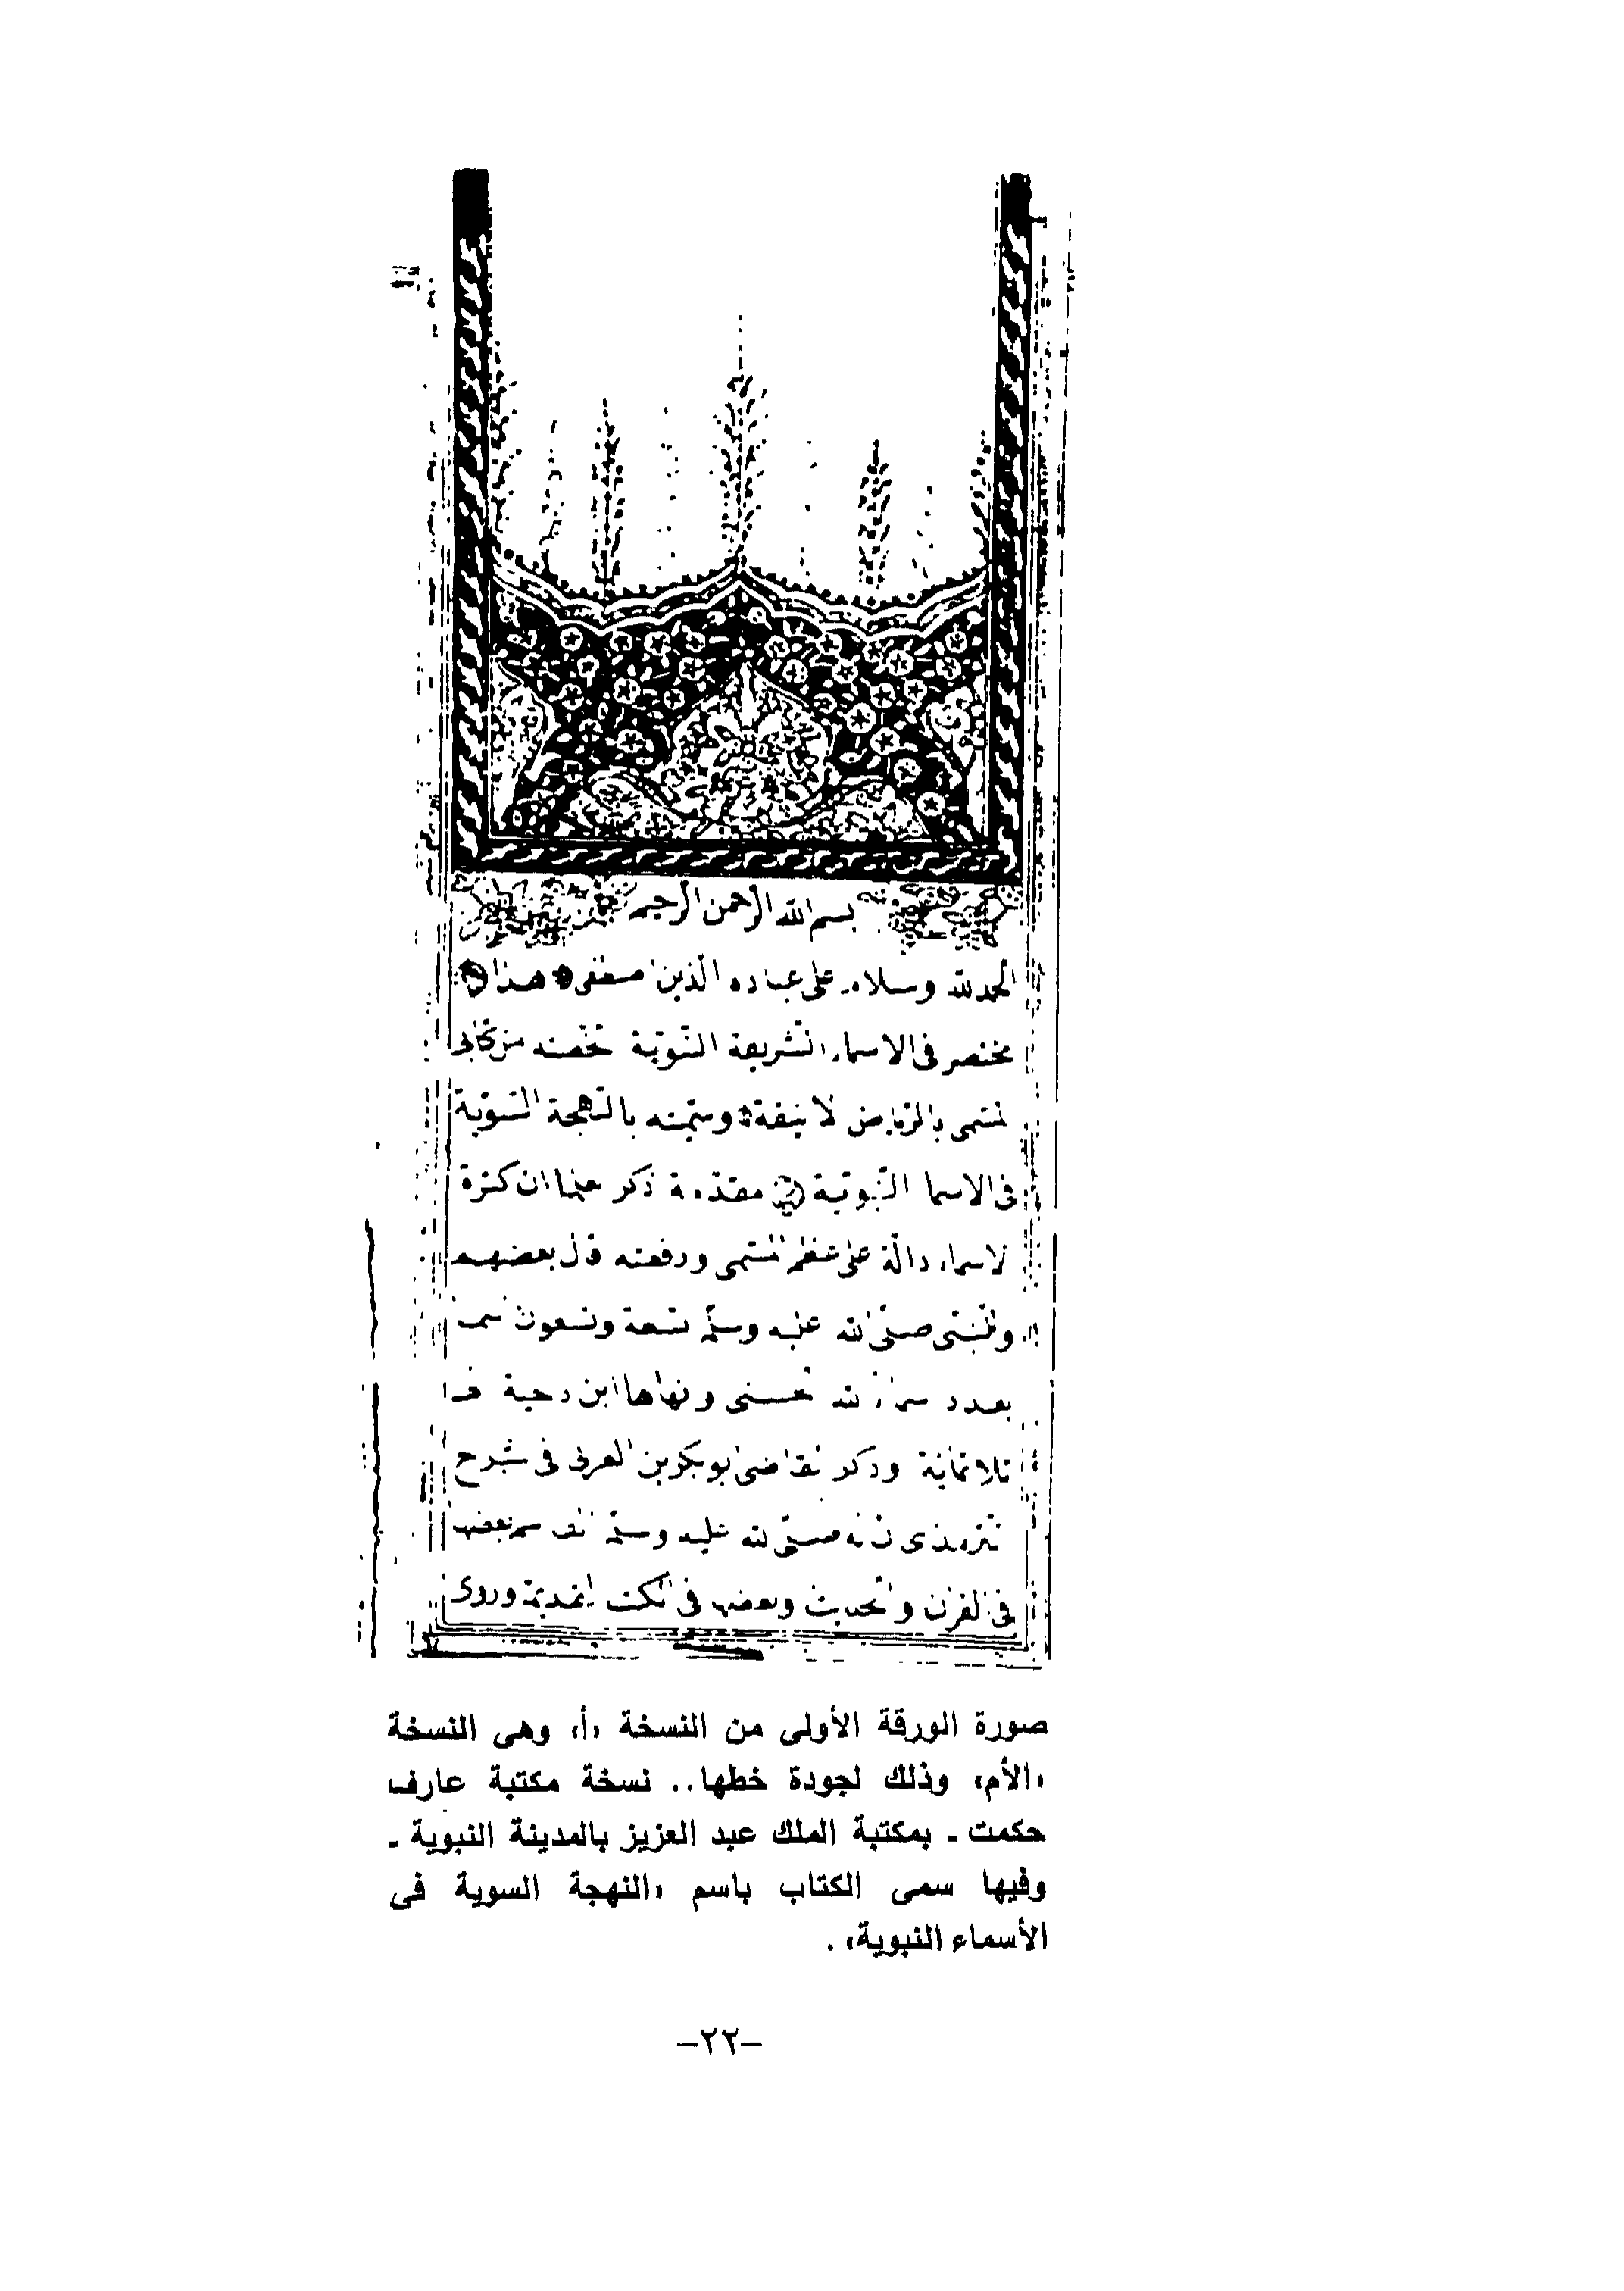 بسم الله الرحمن الرحيم
الحمد لله وسلام على عباده الذين اصطفى هذا
مختصر فى الاسماء الشريفة النبوية لخصته من كتابى
المسمى بالرياض الانيقة وسميته بالنهجة السوية
فى الاسما النبوية مقدمة ذكر علما ان كثرة
الاسماء دالة على عظم المسمى ورفعته قال بعضهم
وللنبى صلى الله عليه وسلم تسعة وتسعون اسما
بعدد اسماء الله الحسنى وانهاها ابن دحية
ثلاثماية وذكر القاضى ابو بكر بن العربى فى شرح
الترمذى ان له صلى الله عليه وسلم الف اسم بعضها
فى القرآن والحديث وبعضها فى الكتب القديمة وروى
صورة الورقة الأولى من النسخة «أ» وهى النسخة
«الأم» وذلك لجودة خطها.. نسخة مكتبة عارف
حكمت ـ بمكتبة الملك عبد العزيز بالمدينة النبوية ـ
وفيها سمى الكتاب باسم «النهجة السوية فى
الأسماء النبوية» .
–٢٢–